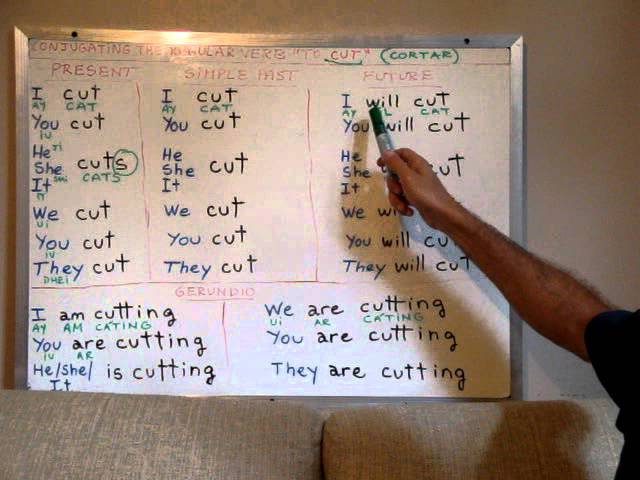 CONJUGATING THE REGULAR VERB "TO CUT" (CORTAR)
PRESENT
I cut
AY CAT
You cut
IU
He JI
She cuts
SHI CATS
It
IT
We cut
UI
You cut
IU
They cut
DHEI
SIMPLE PAST
I cut
AY CAT
You cut
He
She cut
It
We cut
You cut
They cut
FUTURE
I will cut
AY CAT
You will cut
He
She will cut
It
We will
You will cut
They will cut
GERUNDIO
I am cutting
AY AM CATING
You are cutting
IU AR
He/She/ is cutting
It
We are cutting
UI AR CATING
You are cutting
They are cutting